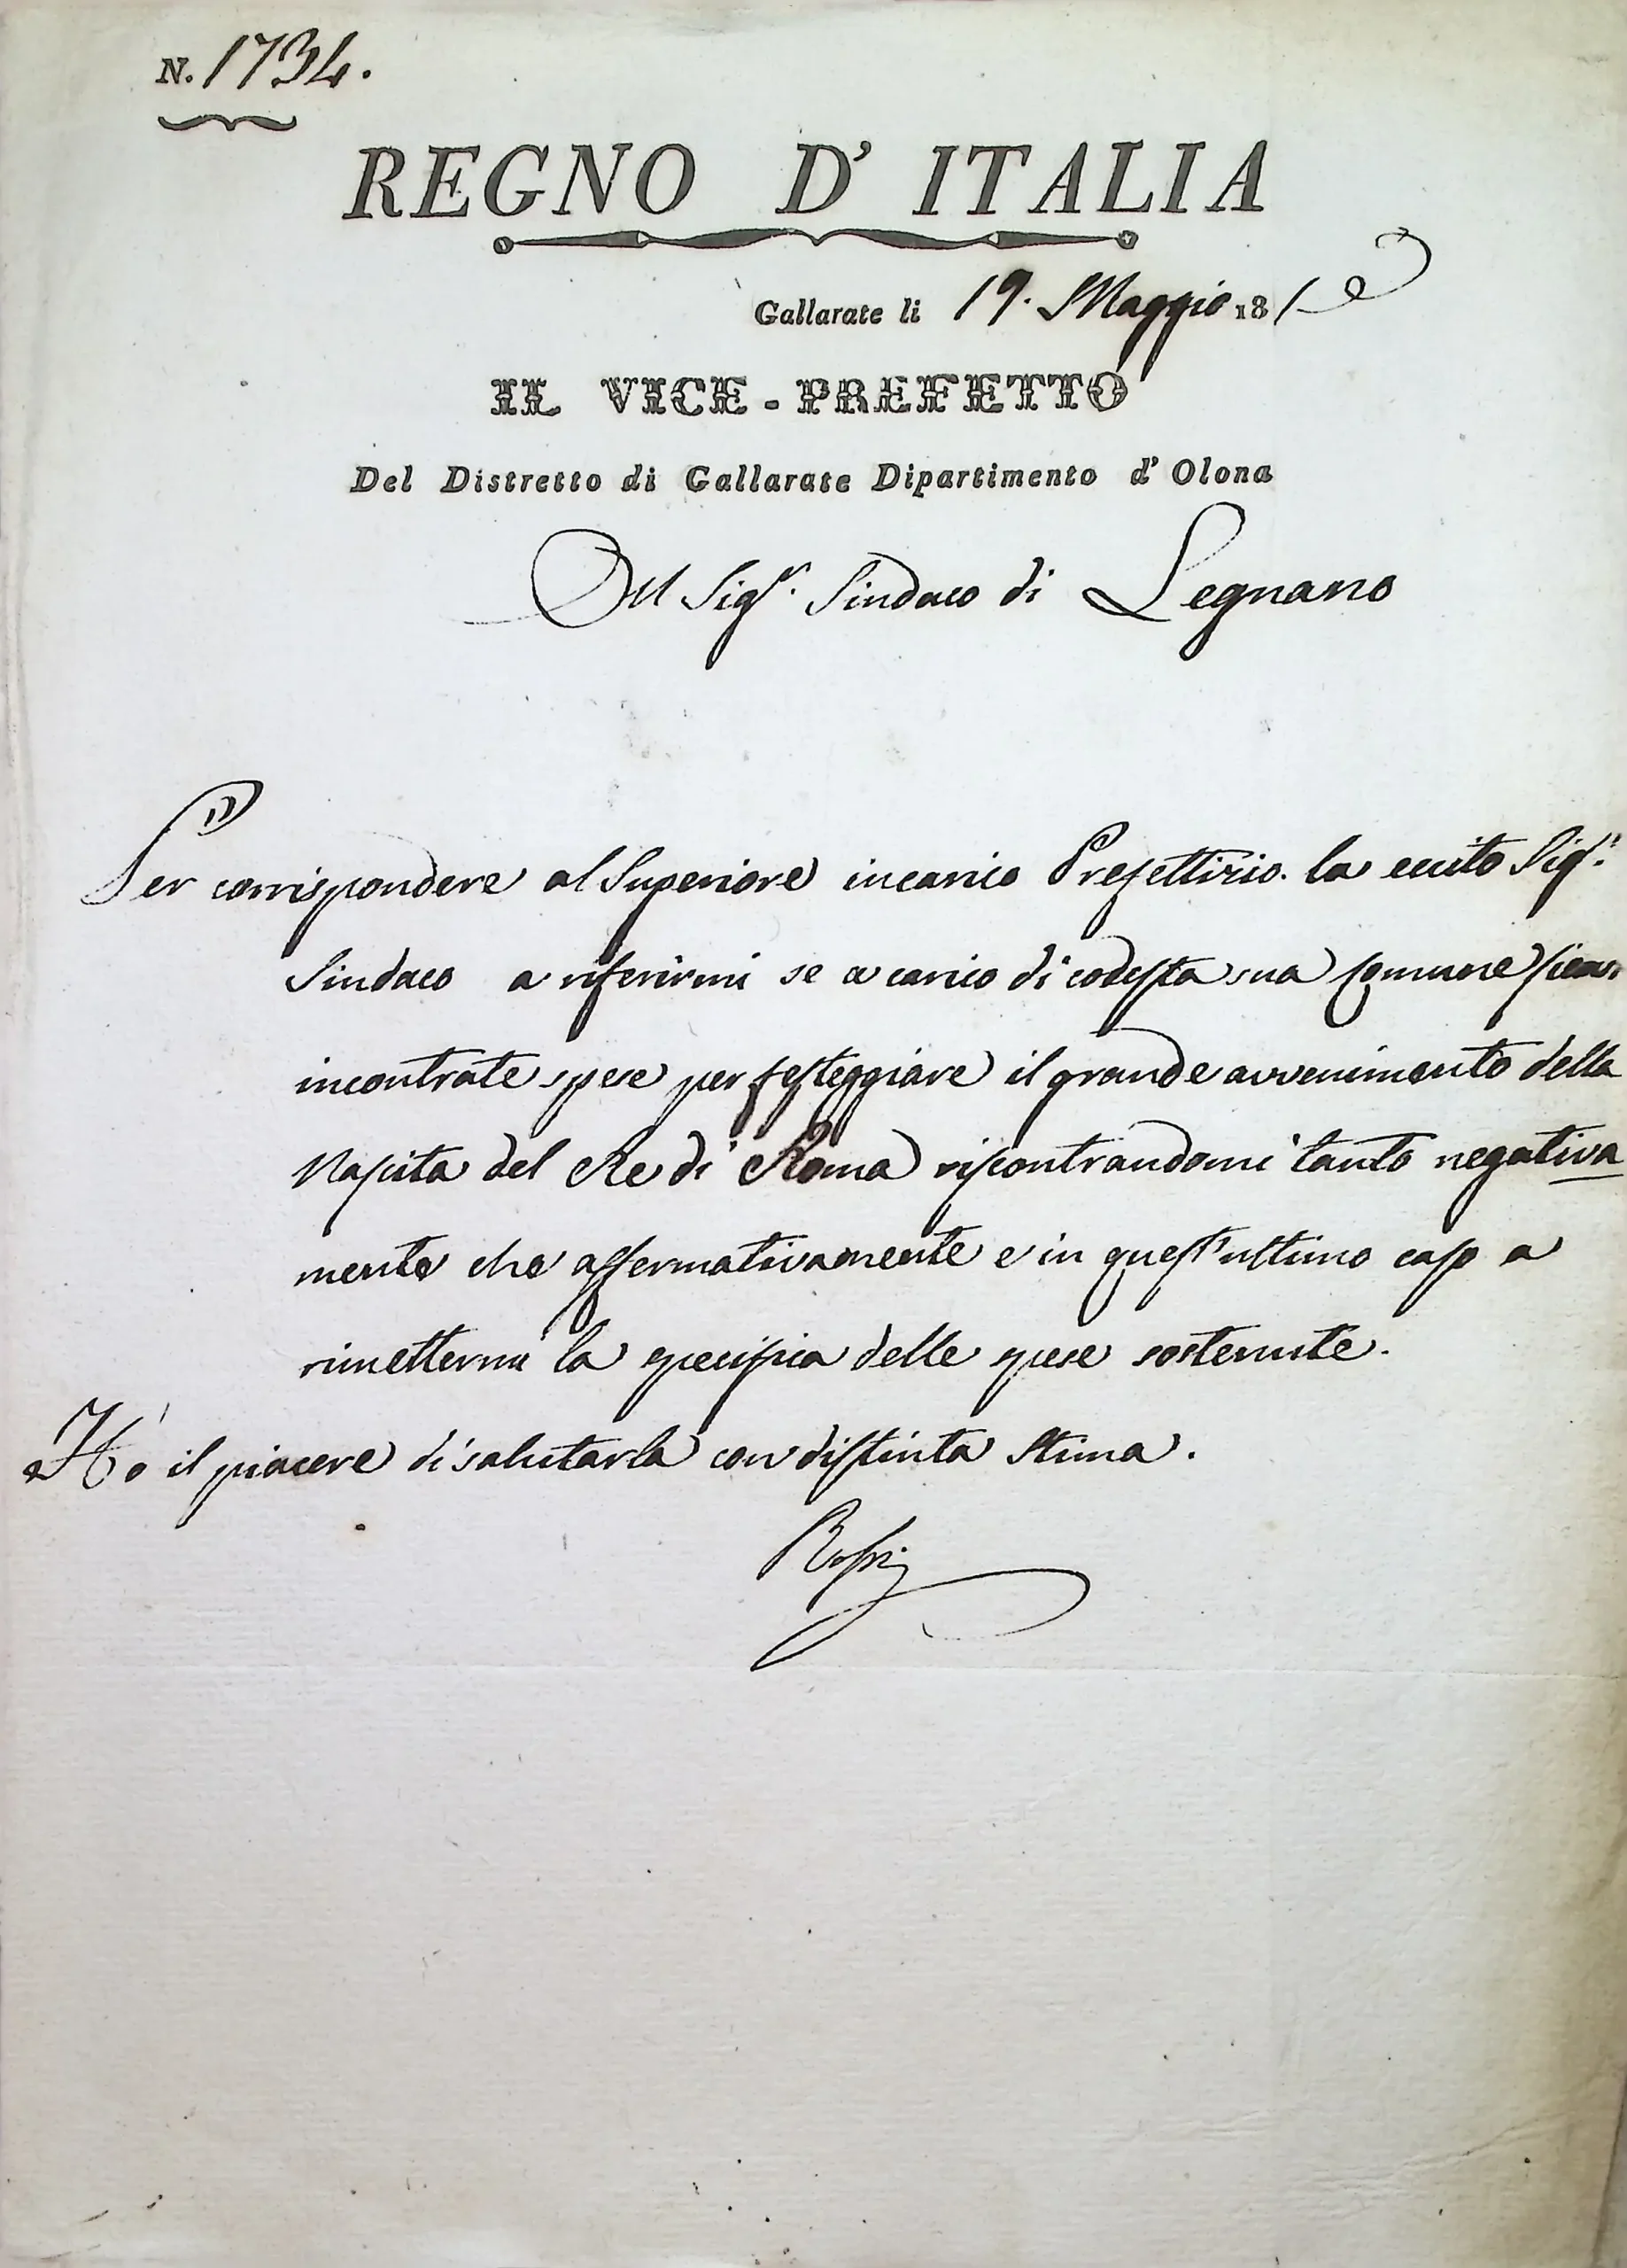 N. 1734.
REGNO D' ITALIA
Gallarate li 19. Maggio 181
IL VICE-PREFETTO
Del Distretto di Gallarate Dipartimento d' Olona
Al Sigr. Sindaco di Legnano
Per corrispondere al Superiore incarico Prefettizio. la eccito Sigr.
Sindaco a riferirmi se a carico di codesta sua Comune siensi
incontrate spese per festeggiare il grande avvenimento della
Nascita del Re di Roma riscontrandomi tanto negativa
mente che affermativamente e in quest'ultimo caso a
rimettermi la specifica delle spese sostenute.
Hò il piacere di salutarla con distinta stima.
Rossi